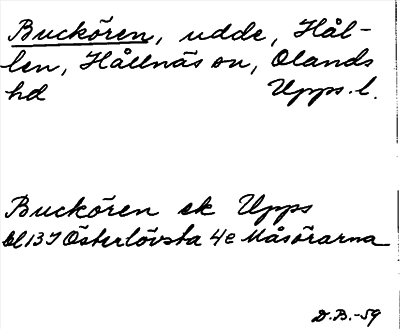 Buckören, udde, Hål-
len, Hållnäs sn, Olands
hd Upps. l.
Buckören ek Upps
bl 13I Österlövsta 4e Måsörarna
D.B.-59